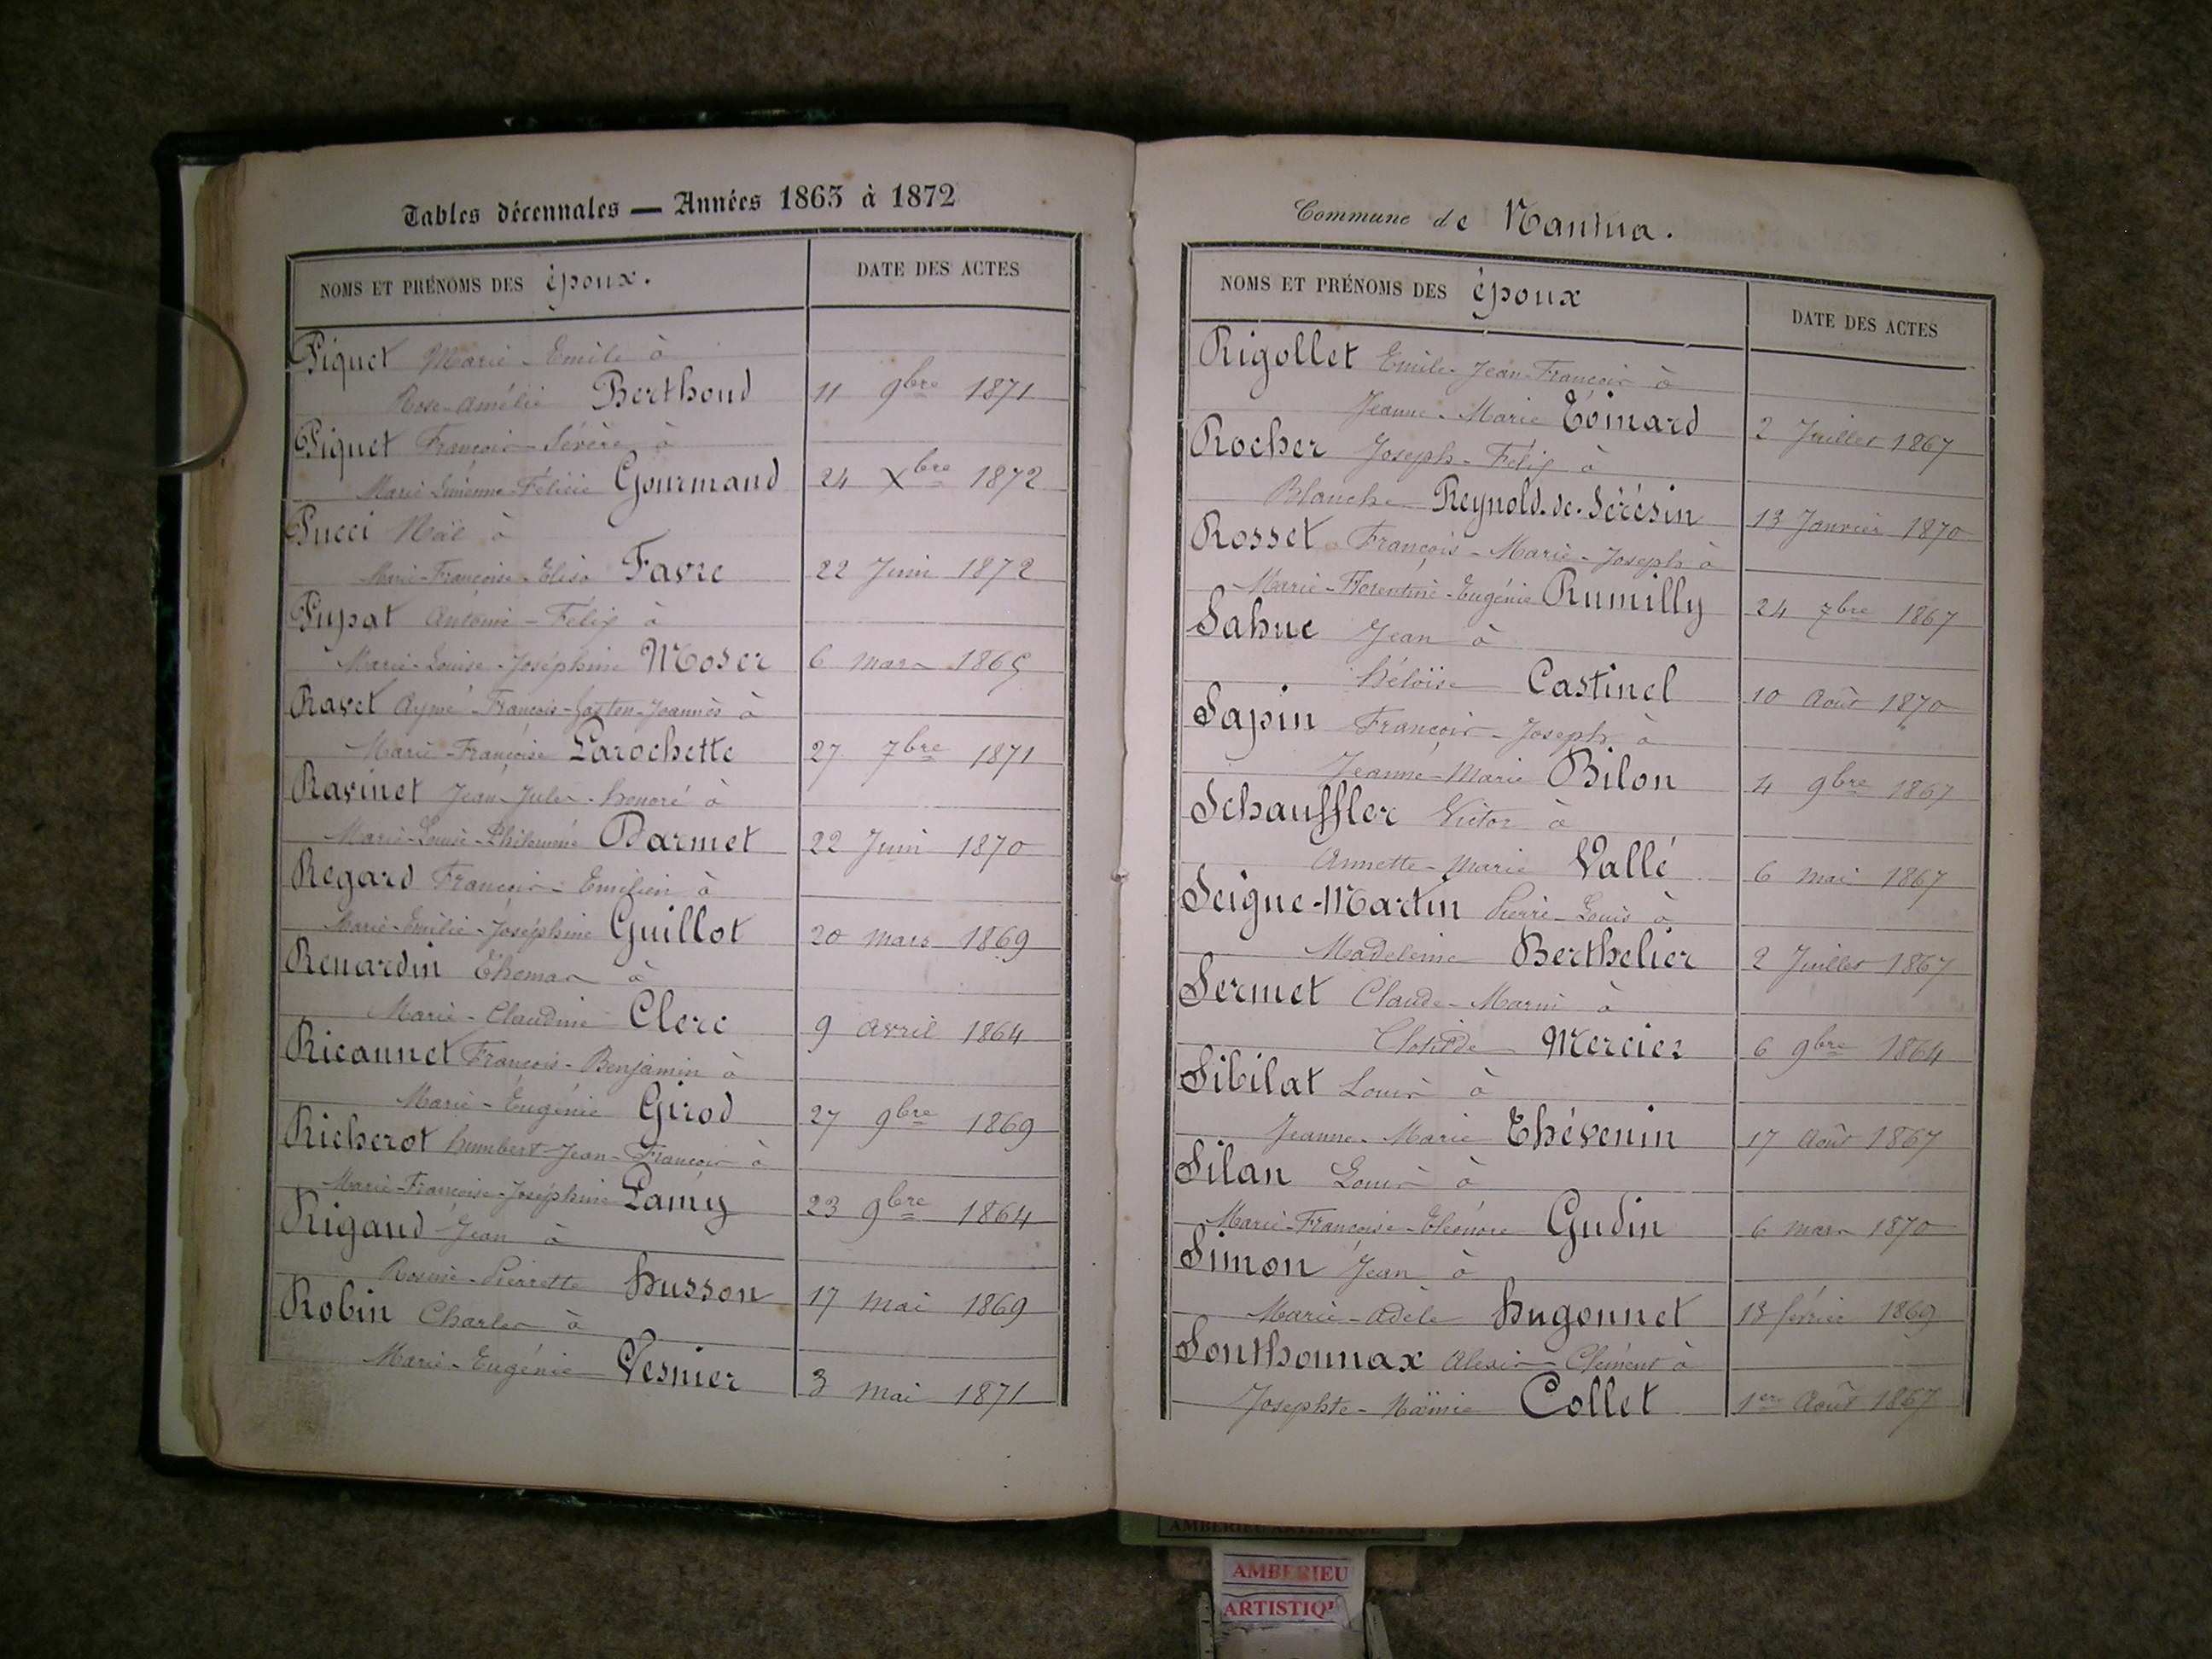 Tables décennales — Années 1863 à 1872
NOMS ET PRÉNOMS DES époux.
DATE DES ACTES
Piquet Marie-Emile à
Rose-Amélie Berthoud 11 9bre 1871
Piquet François-Sévère à
Félicie Gourmand 24 Xbre 1872
Pucci à
Marie-Françoise-Elisa Favre 22 Juin 1872
Pupat Antoine-Félix à
Marie-Louise-Joséphine Moser 6 mars 1865
Ravet Aymé-François-Gaston-Joannès à
Marie-Françoise Larochette 27 7bre 1871
Ravinet Jean-Jules-honoré à
Marie-Louise-Philomène Darmet 22 Juin 1870
Regard François-Emilien à
Marie-Emilie-Joséphine Guillot 20 mars 1869
Renardin Thomas à
Marie-Claudine Clerc 9 avril 1864
Ricannet François-Benjamin à
Marie-Eugénie Girod 27 9bre 1869
Richerot humbert-Jean-François à
Marie-Françoise-Joséphine Lamy 23 9bre 1864
Rigaud Jean à
Rosine-Pierrette husson 17 mai 1869
Robin Charles à
Marie-Eugénie Vesnier 3 mai 1871
Commune de Nantua.
NOMS ET PRÉNOMS DES époux
DATE DES ACTES
Rigollet Emile-Jean-François à
Jeanne-Marie Toinard 2 Juillet 1867
Rocher Joseph-Félix à
Blanche Reynold-de-Sérésin 13 Janvier 1870
Rosset François-Marie-Joseph à
Marie-Florentine-Eugénie Rumilly 24 7bre 1867
Sahuc Jean à
héloïse Castinel 10 Août 1870
Sapin François-Joseph à
Jeanne-Marie Bilon 4 9bre 1867
Schauffler Victor à
Annette-Marie Vallé 6 mai 1867
Seigne-Martin Pierre-Louis à
Madeleine Berthelier 2 Juillet 1867
Sermet Claude-Marin à
Clotilde Mercier 6 9bre 1864
Sibilat Louis à
Jeanne-Marie Thévenin 17 Août 1867
Silan Louis à
Marie-Françoise-Eléonore Gudin 6 mars 1870
Simon Jean à
Marie-adèle hugonnet 13 février 1869
Sonthonnax Alexis-Clément à
Josephte-Noëmie Collet 1er Août 1867
AMBERIEU ARTISTIQUE
AMBERIEU
ARTISTIQU